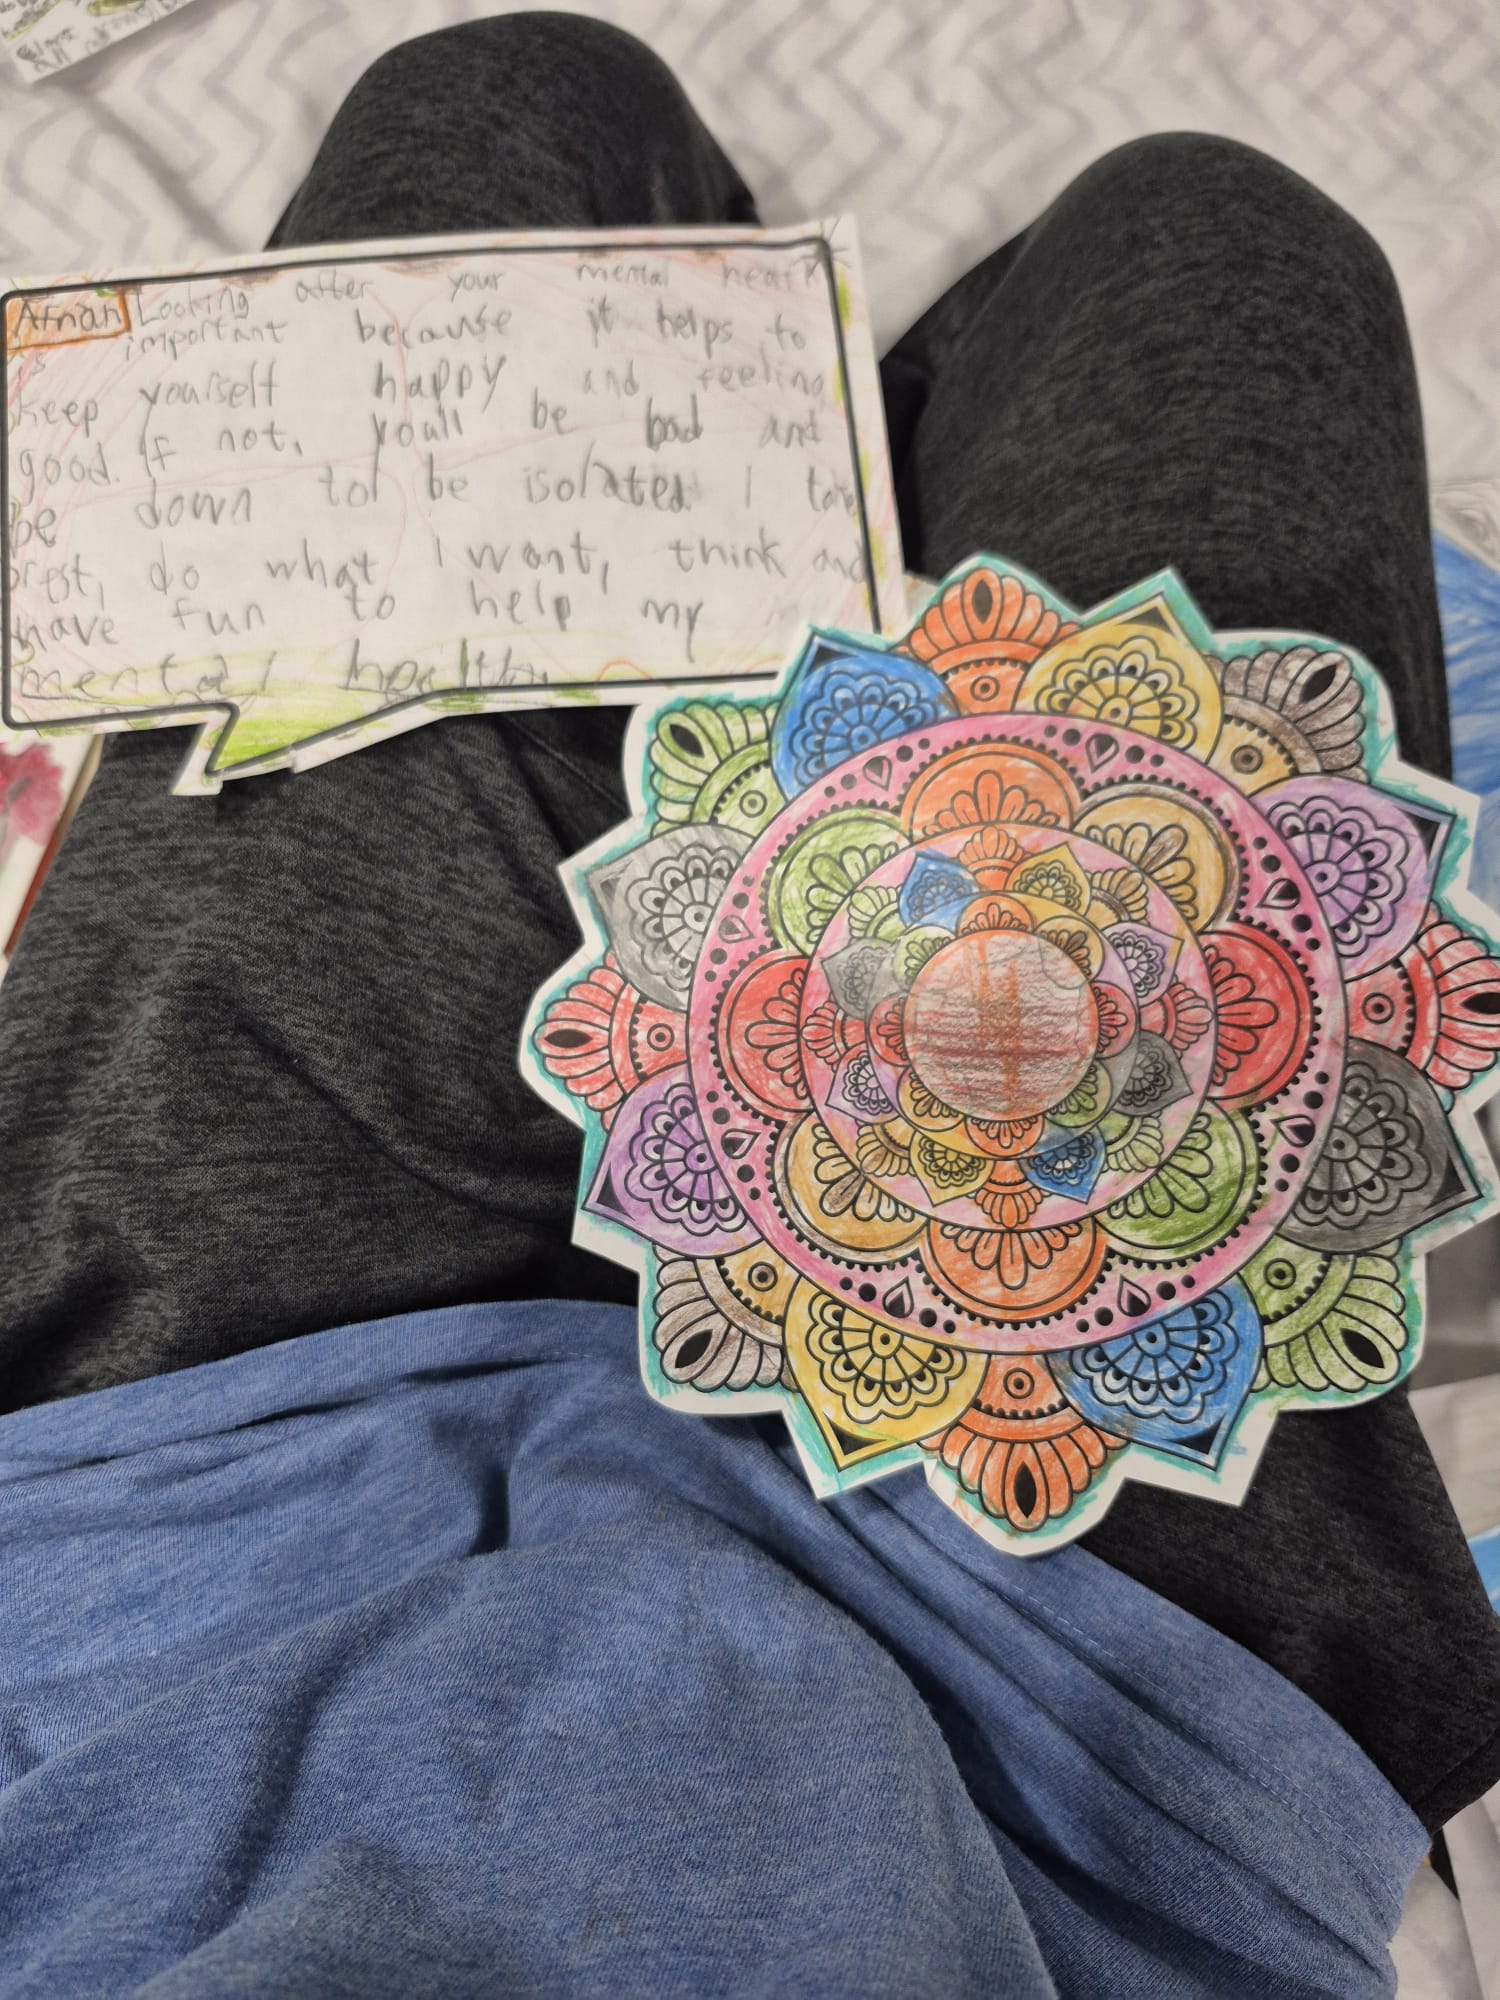 Afnan Looking after your mental heath
is important because it helps to
keep yourself happy and feeling
good. If not, youll be bad and
be down to be isolated. I
rest, do what I want, think and
have fun to help my
mental health.